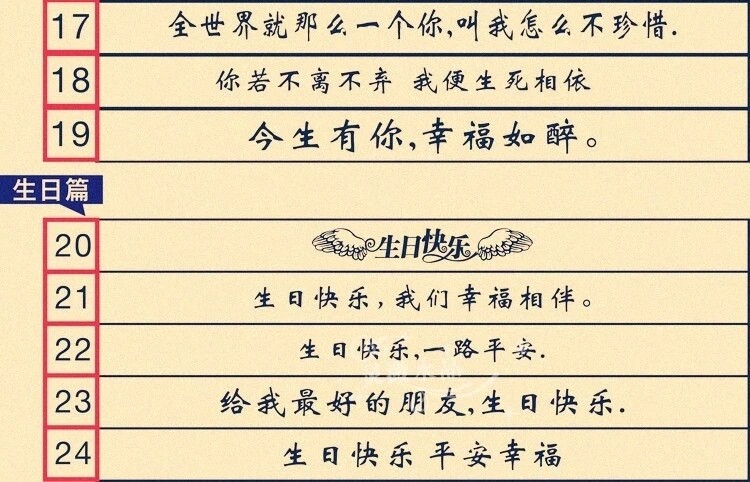 17 全世界就那么一个你,叫我怎么不珍惜.
18 你若不离不弃 我便生死相依
19 今生有你,幸福如醉。
生日篇
20 生日快乐
21 生日快乐,我们幸福相伴。
22 生日快乐,一路平安.
23 给我最好的朋友,生日快乐.
24 生日快乐 平安幸福